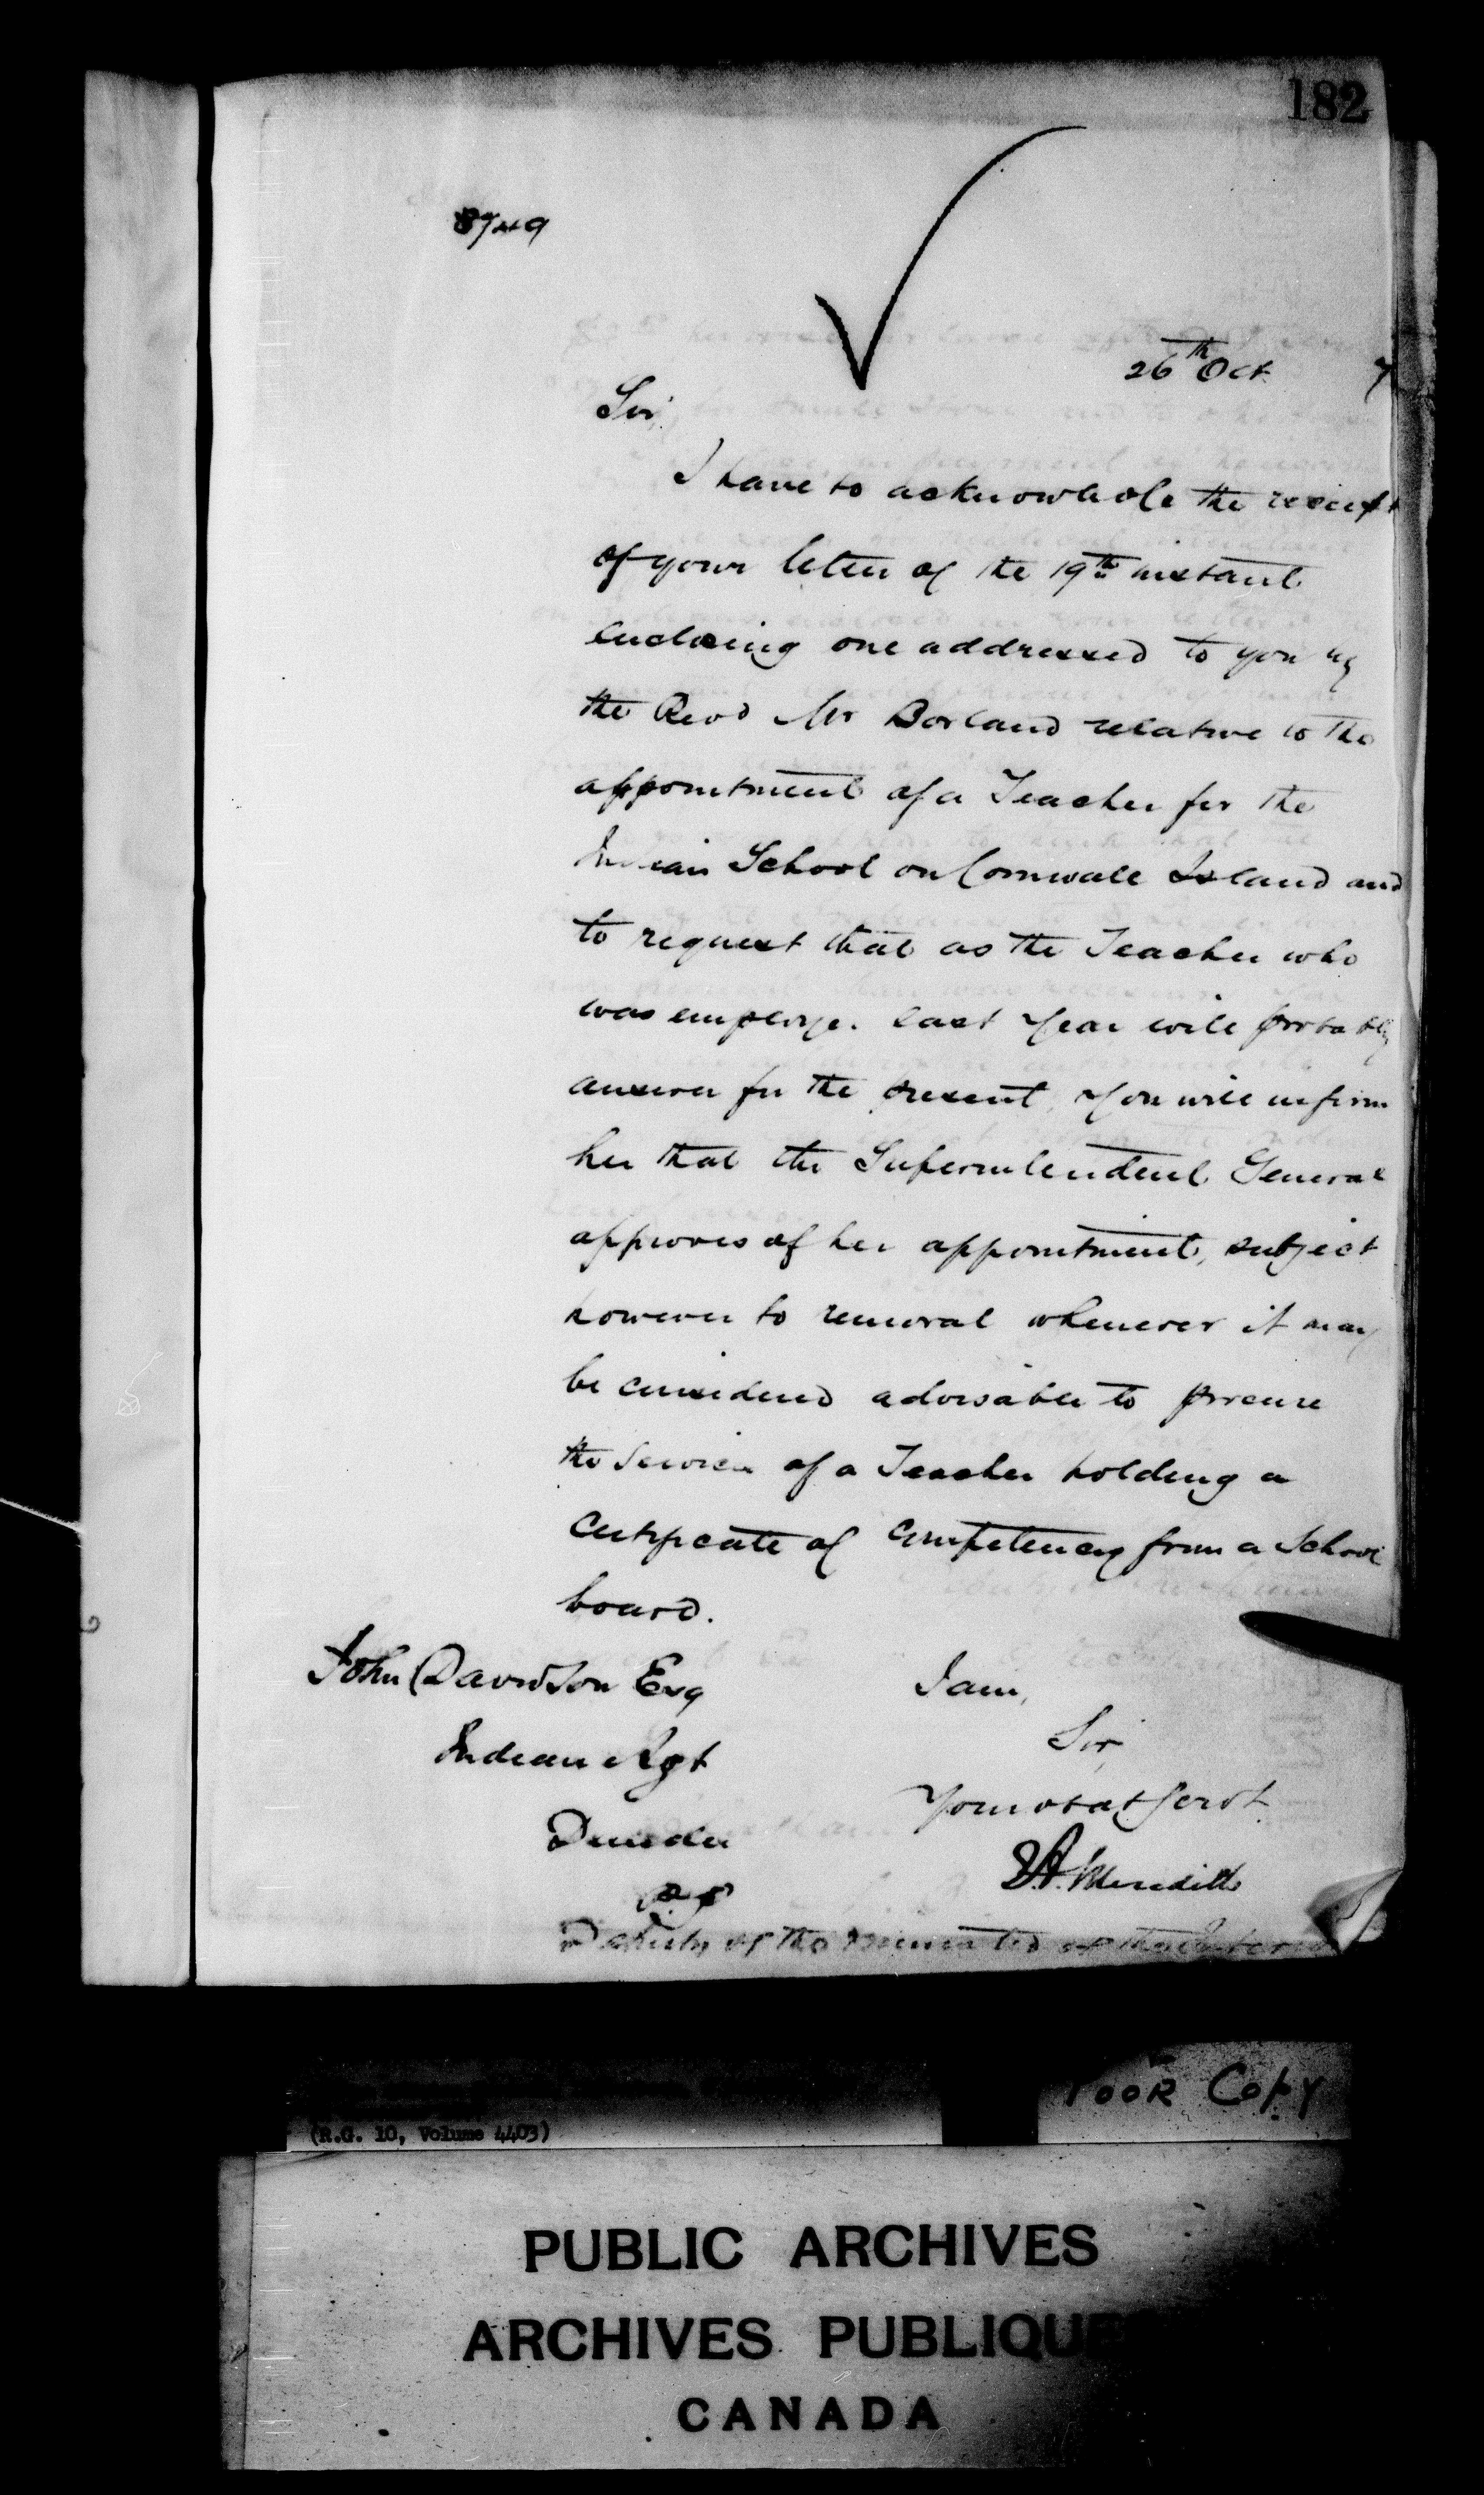 182
8749
26th Oct 7
Sir,
I have to acknowledge the receipt
of your letter of the 19th instant
enclosing one addressed to you by
the Revd Mr Borland relative to the
appointment of a Teacher for the
Indian School on Cornwall Island and
to request that as the Teacher who
was employed last year will probably
answer for the present, you will inform
her that the Superintendent General
approves of her appointment, subject
however to removal whenever it may
be considered advisable to procure
the services of a Teacher holding a
certificate of competency from a School
board.
John Davidson Esq
I am,
Indian Agt
Sir,
Your obdt Servt
Dundee
P.Q.
Meredith
Deputy of the Minister of the Interior
POOR COPY
(R.G. 10, Volume 4403)
PUBLIC ARCHIVES
ARCHIVES PUBLIQUE
CANADA